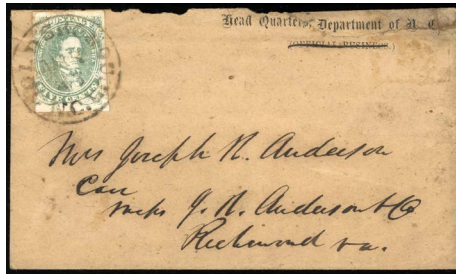 Head Quarters, Department of N. C.
(OFFICIAL BUSINESS)
N.C.
Mrs Joseph R. Anderson
Care
Messrs J. R. Anderson & Co
Richmond Va.